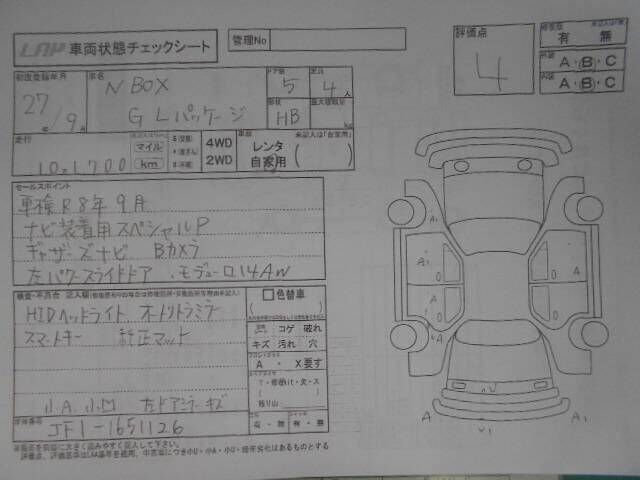 LAP 車両状態チェックシート
管理No
評価点
4
修復歴
有 ・ 無
外装
A・B・C
内装
A・B・C
初度登録年月
27年 / 9月
車名
N BOX
G Lパッケージ
ドア数
5
定員
4人
形状
HB
最大積載量
kg
走行
10.1700
マイル
km
4WD
2WD
車歴
レンタ
自家用
未記入は「自家用」
セールスポイント
車検R8年9月
ナビ装着用スペシャルP
ギャザーズナビ Bカメラ
左パワースライドドア モデューロ14AW
検査・不具合 記入欄
色替車
HIDヘッドライト オートリトラミラー
スマートキー 純正マット
コゲ 破れ
キズ 汚れ 穴
フロントガラス
A ・ X要す
スペアタイヤ
残り山
有・無 有・無
小A、小凹 左ドアミラーキズ
車体番号
JF1-1651126
A1
A1
A
A
A
U
A
U1
A